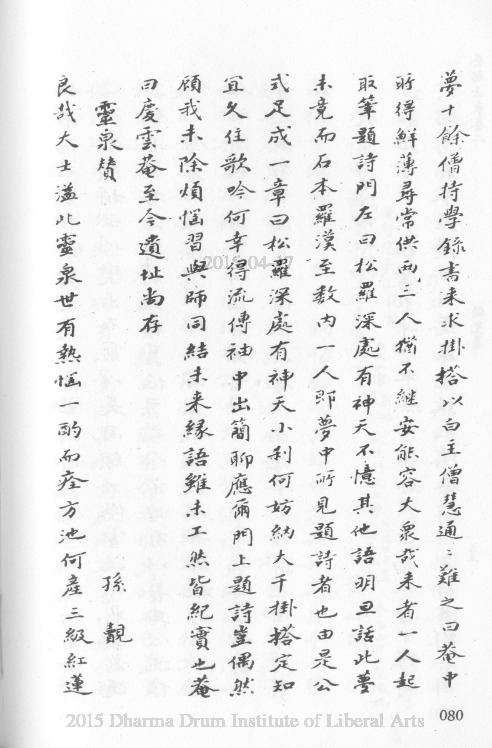 夢十餘僧持學錄書来求掛搭以白主僧慧通〻難之曰菴中
所得鮮薄尋常供两三人猶不継安能容大衆哉来者一人起
取筆題詩門左曰松羅深處有神天不憶其他語明旦話此夢
未竟而石本羅漢至数内一人即夢中所見題詩者也由是公
式足成一章曰松羅深處有神天小刹何妨納大千掛搭定知
冝久住歌吟何幸得流傳袖中出簡聊應倆門上題詩豈偶然
顧我未除煩惱習與師同結未来縁語雖未工然皆紀實也菴
曰慶雲菴至今遺址尚存
靈泉贊
孫覿
良哉大士溢此靈泉世有熱惱一酌而痊方池何產三級紅蓮
2015-04-17
080
2015 Dharma Drum Institute of Liberal Arts